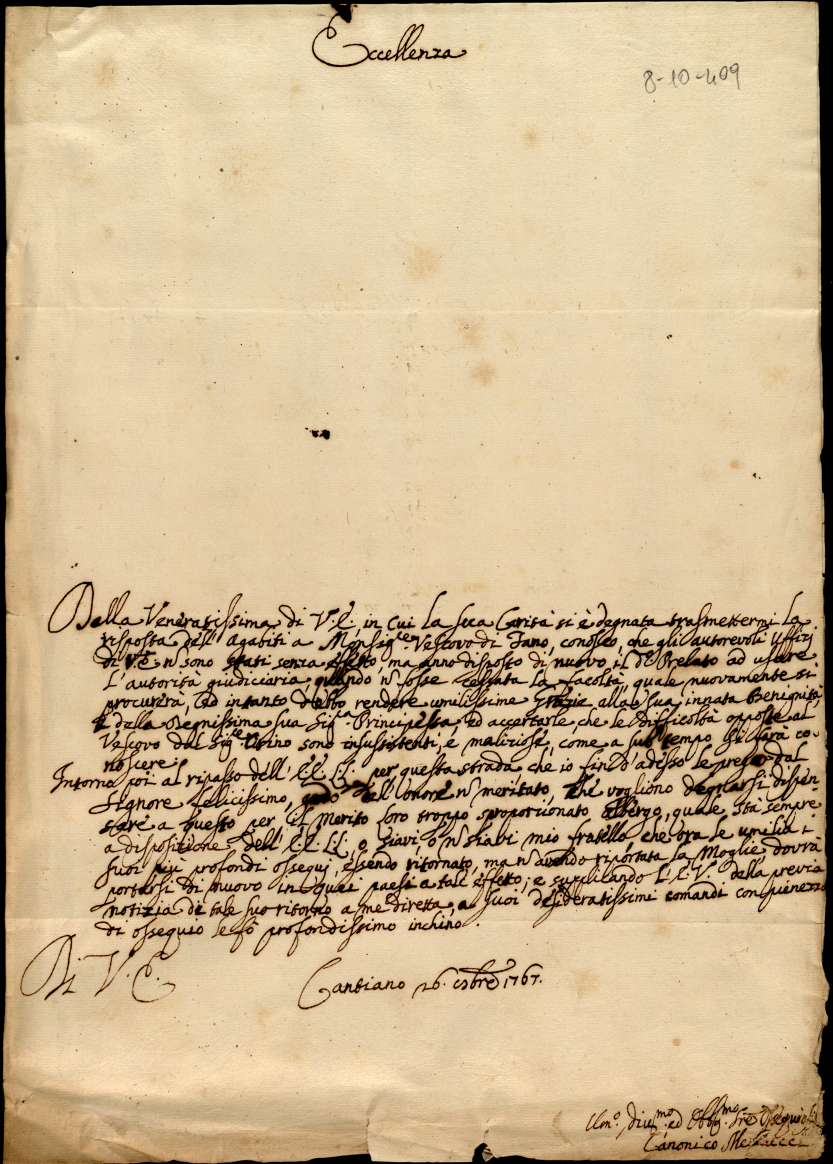 Eccellenza
8-10-409
Dalla Veneratissima di V. E. in cui la sua Carità si è degnata trasmettermi la
risposta dell'Agabiti a Monsig.r Vescovo di Fano, conosco, che gli autorevoli Uffizj
di V. E. ñ sono stati senza effetto, ma anno disposto di nuovo il d.o Prelato ad usare
l'autorità giudiciaria quando ñ fosse cessata la facoltà, quale nuovamente si
procurerà, ed intanto debbo rendere umilissime Grazie alla sua innata Benignità,
e della Degnissima sua Sig.ra Principessa, ed accertarle, che le difficoltà opposte al
Vescovo dal Sig.re sono insussistenti, e maliziose, come a suo tempo si farà co-
noscere.
Intorno poi al ripasso dell'EE. LL. per questa strada, che io fin d'adesso le prego dal
Signore felicissimo, dell'onore ñ meritato, che vogliono degnarsi dispen-
sare a questo per il merito loro troppo sproporzionato albergo, quale stà sempre
a disposizione dell'EE. LL. o siavi o ñ siavi mio fratello, che ora le umilia i
suoi più profondi ossequj, essendo ritornato, ma ñ avendo riportata la Moglie dovrà
portarsi di nuovo in quei paesi a tale effetto; e supplicando l'E. V. della previa
notizia di tale suo ritorno a me diretta, a suoi desideratissimi comandi con pienezza
di ossequio le fò profondissimo inchino.
Di V. E.
Cantiano 26. 1767.
Um.o div.mo ed Obb.mo
Canonico